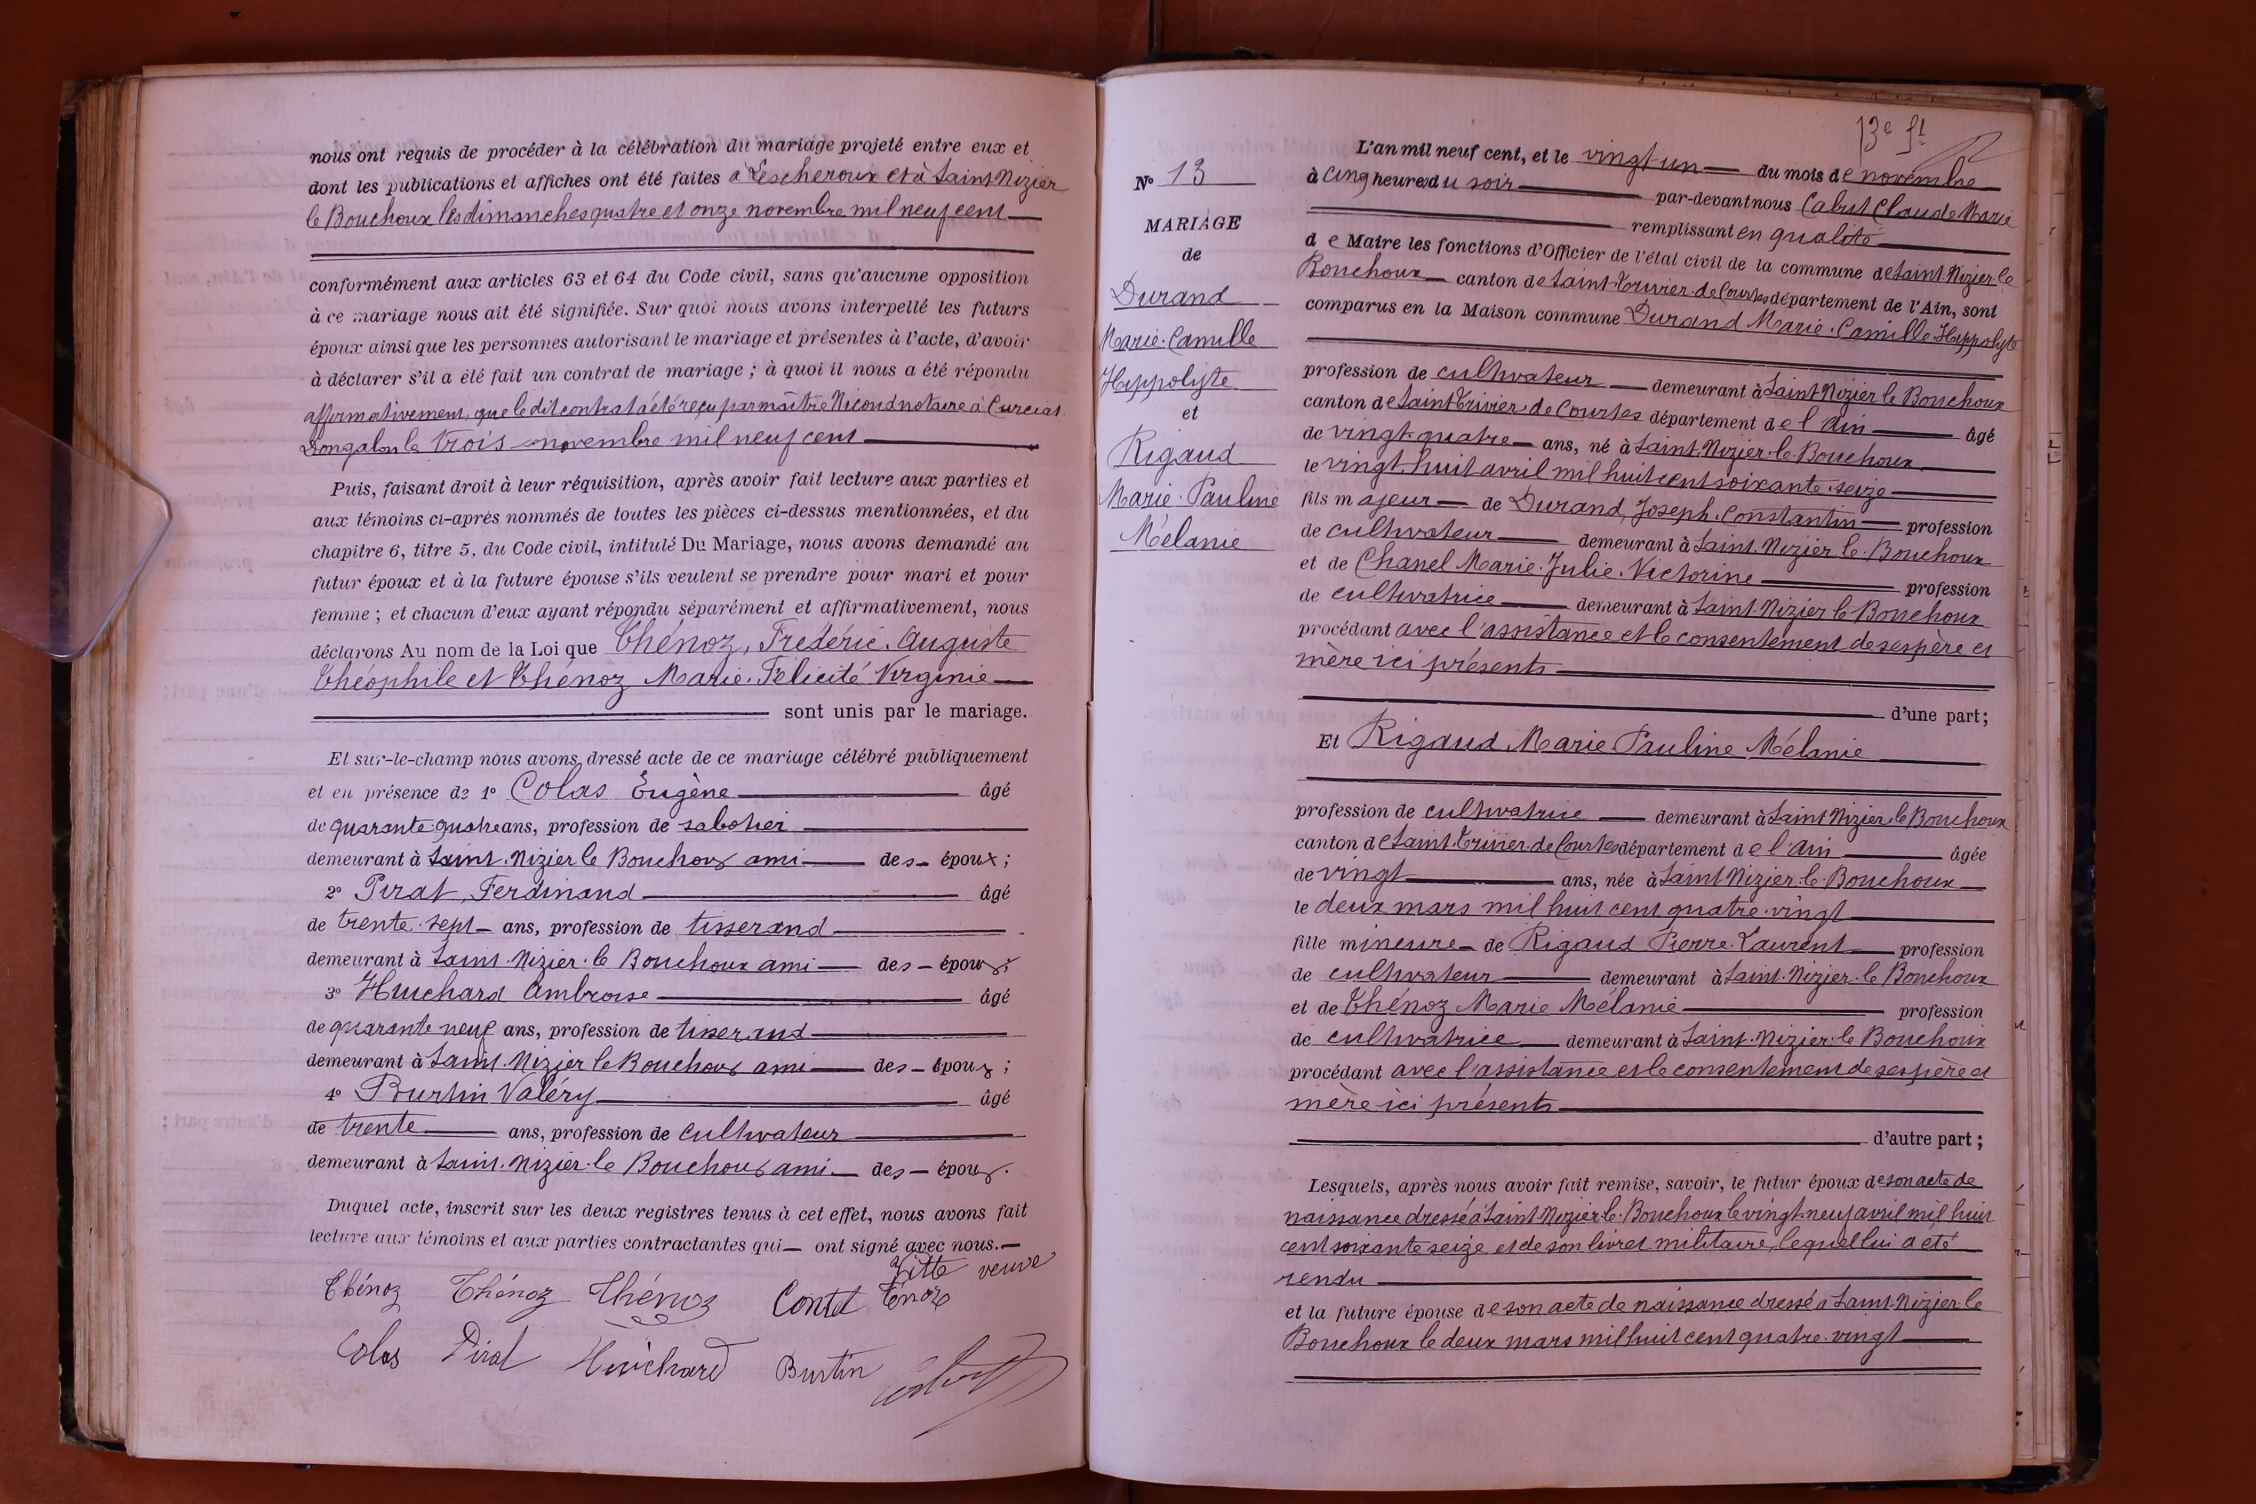 nous ont requis de procéder à la célébration du mariage projeté entre eux et
dont les publications et affiches ont été faites à Lescheroux et à Saint Nizier
le Bouchoux les dimanches quatre et onze novembre mil neuf cent
conformément aux articles 63 et 64 du Code civil, sans qu'aucune opposition
à ce mariage nous ait été signifiée. Sur quoi nous avons interpellé les futurs
époux ainsi que les personnes autorisant le mariage et présentes à l'acte, d'avoir
à déclarer s'il a été fait un contrat de mariage ; à quoi il nous a été répondu
affirmativement que ledit contrat a été reçu par maître Nicoud notaire à Curciat
Dongalon le trois novembre mil neuf cent
Puis, faisant droit à leur réquisition, après avoir fait lecture aux parties et
aux témoins ci-après nommés de toutes les pièces ci-dessus mentionnées, et du
chapitre 6, titre 5, du Code civil, intitulé Du Mariage, nous avons demandé au
futur époux et à la future épouse s'ils veulent se prendre pour mari et pour
femme ; et chacun d'eux ayant répondu séparément et affirmativement, nous
déclarons Au nom de la Loi que Thénoz, Fréderic. Auguste
Théophile et Thénoz Marie. Félicité Virginie
sont unis par le mariage.
Et sur-le-champ nous avons dressé acte de ce mariage célébré publiquement
et en présence de 1° Colas Eugène âgé
de quarante quatre ans, profession de sabotier
demeurant à Saint. Nizier le Bouchoux ami des époux ;
2° Pirat, Ferdinand âgé
de trente. sept ans, profession de tisserand
demeurant à Saint. Nizier. le Bouchoux ami des époux ;
3° Huichard Ambroise âgé
de quarante neuf ans, profession de tisserand
demeurant à Saint. Nizier le Bouchoux ami des époux ;
4° Burtin Valéry âgé
de trente ans, profession de cultivateur
demeurant à Saint. Nizier. le Bouchoux ami des époux.
Duquel acte, inscrit sur les deux registres tenus à cet effet, nous avons fait
lecture aux témoins et aux parties contractantes qui ont signé avec nous.
Thénoz Thénoz Thénoz Contet veuve
Colas Pirat Huichard Burtin
13e ft
N° 13
MARIAGE
de
Durand
Marie. Camille
Hyppolyte
et
Rigaud
Marie. Pauline
Mélanie
L'an mil neuf cent, et le vingt-un du mois de novembre
à cinq heures du soir par-devant nous Cabut Claude Marie
remplissant en qualité
de Maire les fonctions d'Officier de l'état civil de la commune de Saint. Nizier. le
Bouchoux canton de Saint. Trivier. de Courtes département de l'Ain, sont
comparus en la Maison commune Durand Marie. Camille. Hyppolyte
profession de cultivateur demeurant à Saint Nizier le Bouchoux
canton de Saint Trivier. de Courtes département de l'Ain âgé
de vingt. quatre ans, né à Saint. Nizier. le. Bouchoux
le vingt. huit avril mil huit cent soixante. seize
fils majeur de Durand, Joseph. Constantin profession
de cultivateur demeurant à Saint. Nizier le. Bouchoux
et de Chanel Marie. Julie. Victorine profession
de cultivatrice demeurant à Saint. Nizier le Bouchoux
procédant avec l'assistance et le consentement de ses père et
mère ici présents
d'une part ;
Et Rigaud Marie Pauline Mélanie
profession de cultivatrice demeurant à Saint Nizier le Bouchoux
canton de Saint. Trivier. de Courtes département de l'Ain âgée
de vingt ans, née à Saint Nizier. le. Bouchoux
le deux mars mil huit cent quatre. vingt
fille mineure de Rigaud Pierre. Laurent profession
de cultivateur demeurant à Saint. Nizier. le Bouchoux
et de Thénoz Marie Mélanie profession
de cultivatrice demeurant à Saint. Nizier. le Bouchoux
procédant avec l'assistance et le consentement de ses père et
mère ici présents
d'autre part ;
Lesquels, après nous avoir fait remise, savoir, le futur époux de son acte de
naissance dressé à Saint. Nizier. le. Bouchoux le vingt. neuf avril mil huit
cent soixante seize et de son livret militaire, lequel lui a été
rendu
et la future épouse de son acte de naissance dressé à Saint. Nizier. le
Bouchoux le deux mars mil huit cent quatre. vingt